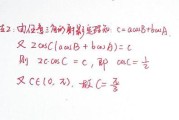 法2: 由任意三角形射影定理知 c=acosB+bcosA.
又 2cosC(acosB+bcosA)=c
则 2c·cosC=c, 即 cosC=1/2
又 C∈(0,π), 故 C=π/3